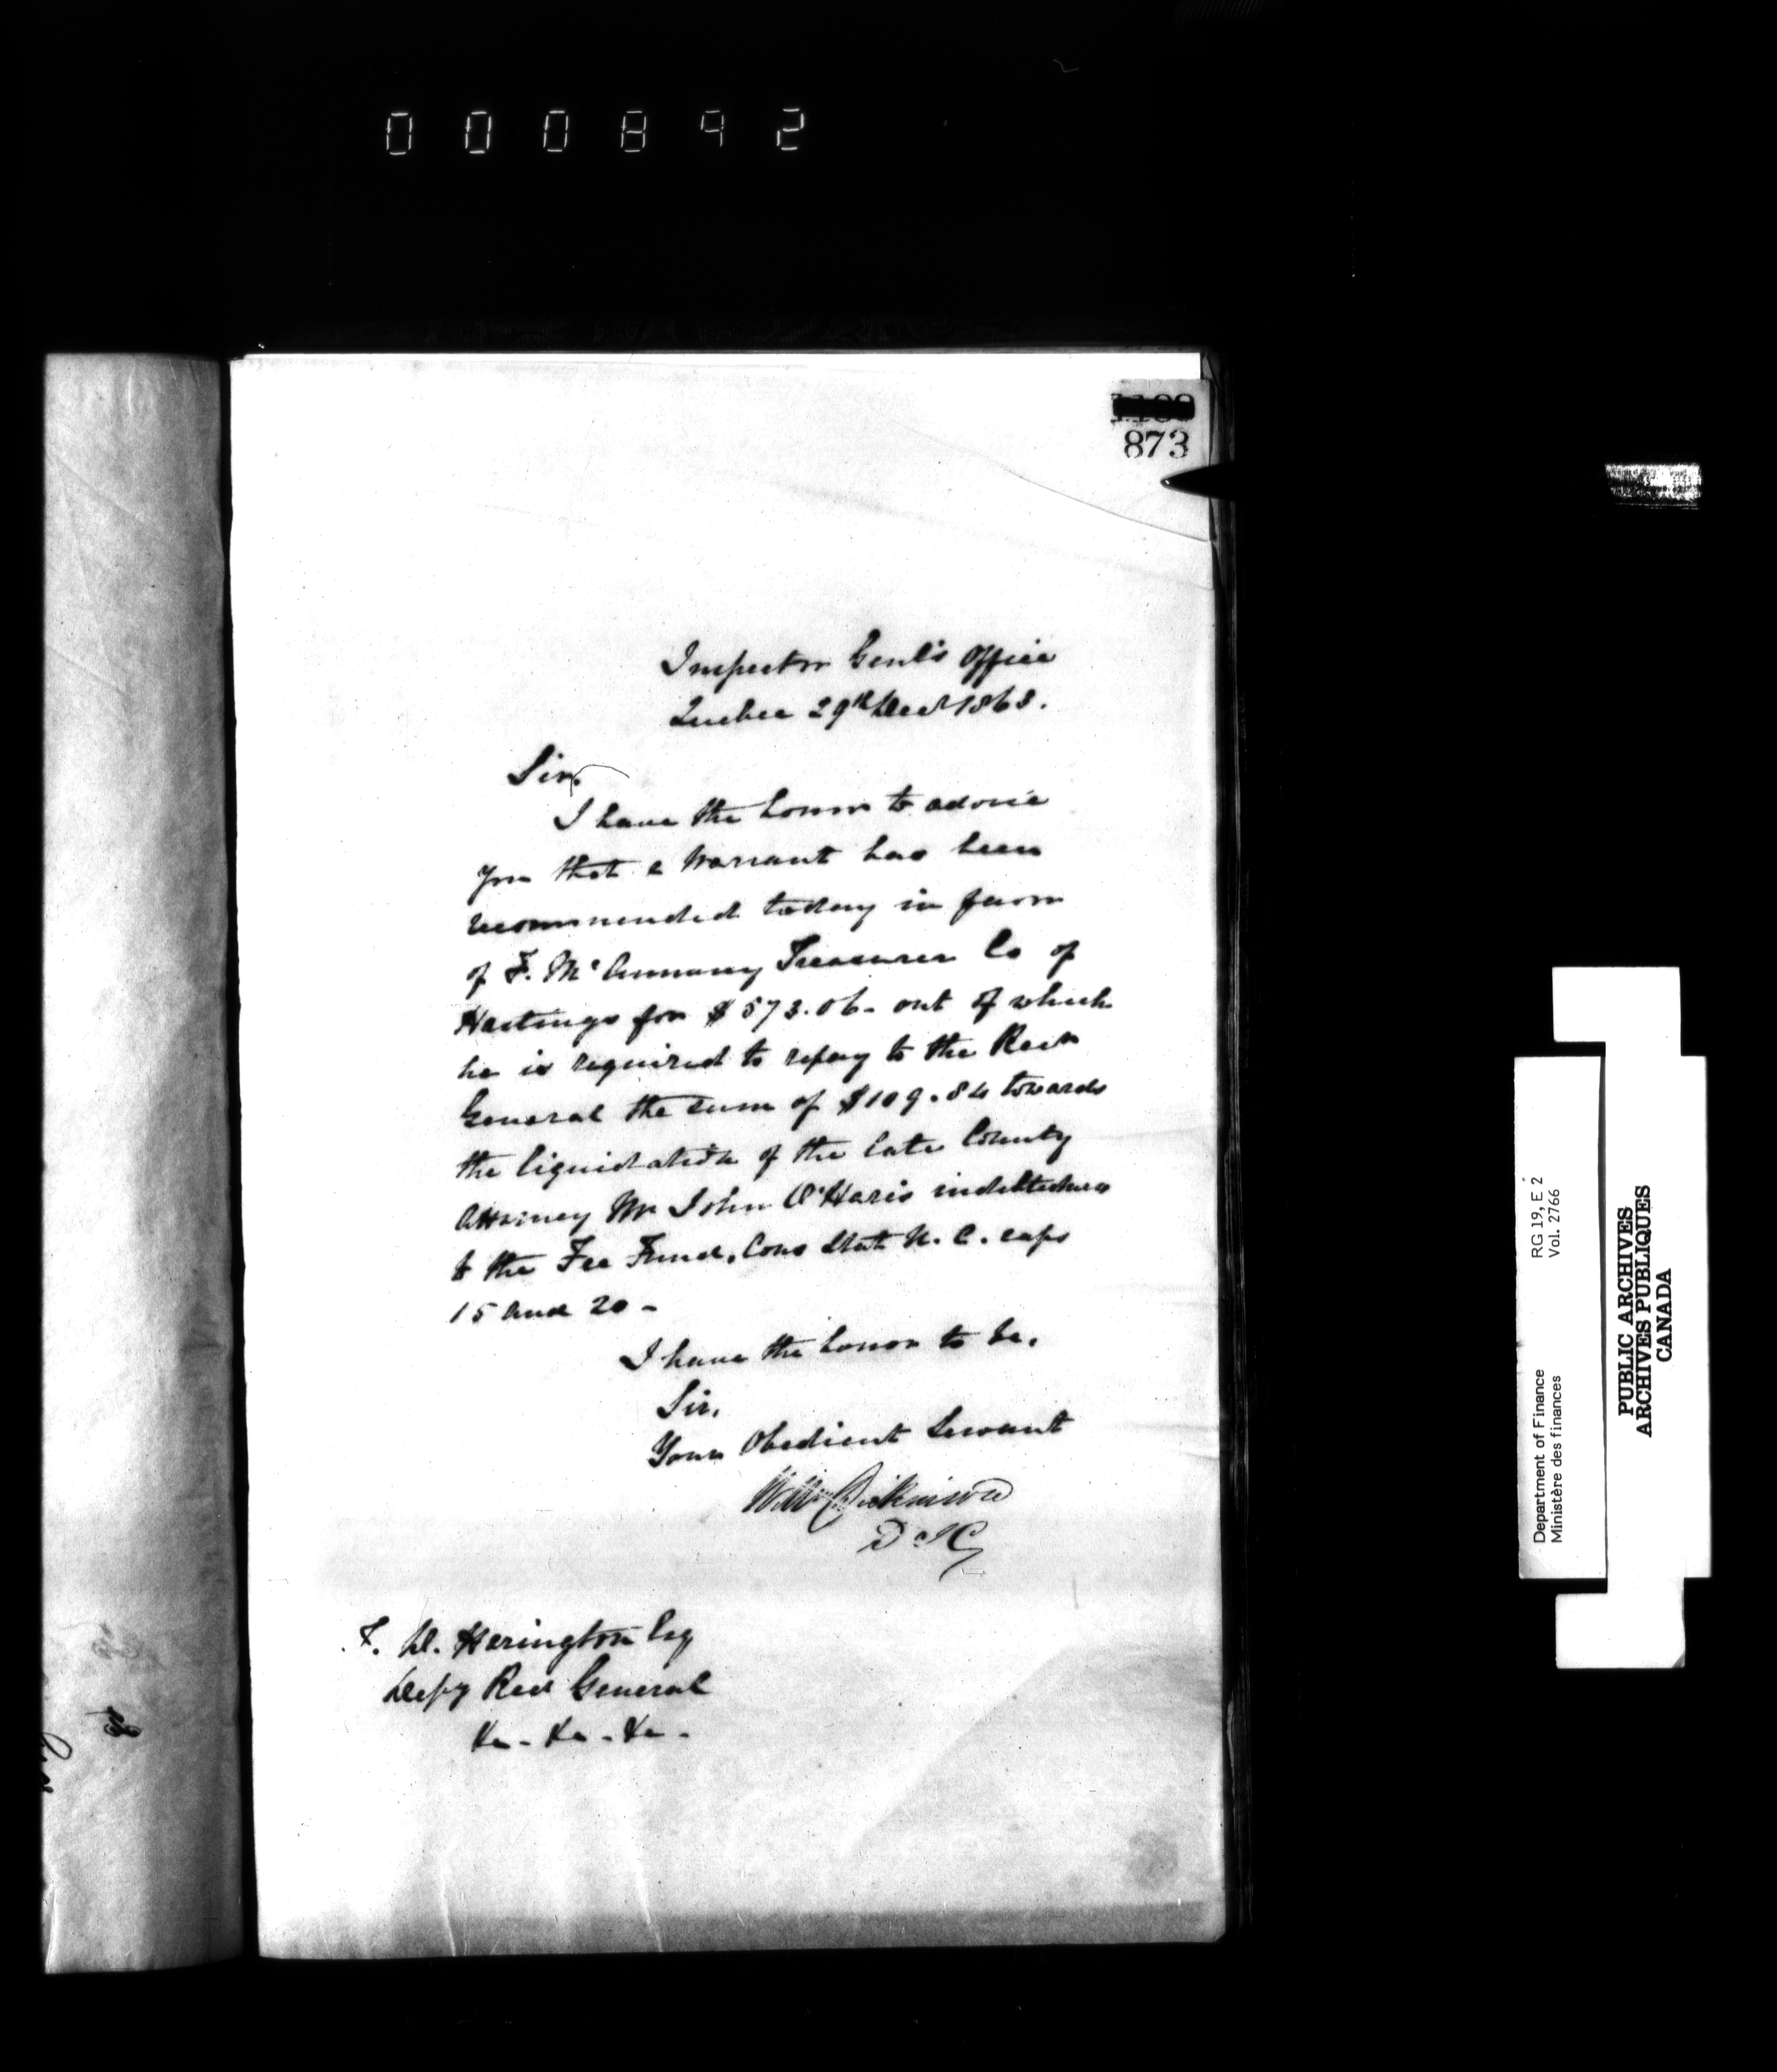 000892
873
Inspector Genl's Office
Quebec 29th Decr 1863.
Sir,
I have the honor to advise
you that a Warrant has been
recommended today in favor
of F. McAnnany Treasurer Co of
Hastings for $573.06- out of which
he is required to repay to the Recr
General the sum of $109.84 towards
the liquidation of the late County
Attorney Mr John O'Haris indebtedness
to the Fee Fund, Cons Stat U.C. caps
15 and 20 -
I have the honor to be,
Sir,
Your Obedient Servant
Wm Dickinson
D I G
F. D. Harington Esq
Depy Recr General
&c - &c - &c -
RG 19, E 2
Vol. 2766
Department of Finance
Ministère des finances
PUBLIC ARCHIVES
ARCHIVES PUBLIQUES
CANADA